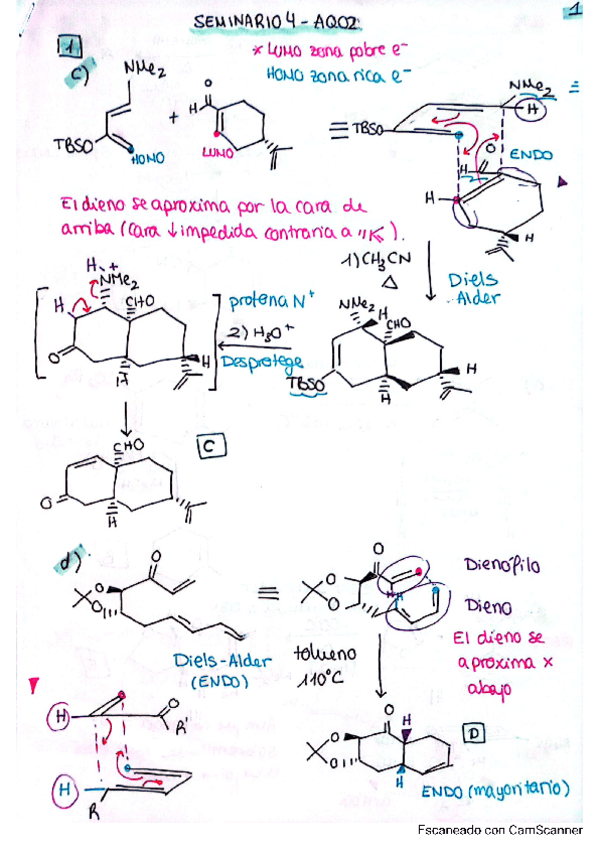 SEMINARIO 4 - AQO2
1
1
* LUMO zona pobre e⁻
HOMO zona rica e⁻
c)
NMe2
TBSO
HOMO
+
H
O
LUMO
≡
TBSO
NMe2
H
O
ENDO
H
H
H
El dieno se aproxima por la cara de
arriba (cara ↓ impedida contraria a
1) CH3CN
Δ
Diels
-Alder
H +
NMe2
H
CHO
O
H
H
protena N⁺
2) H3O⁺
Desprotege
NMe2
H
CHO
TBSO
H
H
CHO
O
H
C
d)
O
O
O
≡
O
O
O
H
H
Dienófilo
Dieno
El dieno se
aproxima x
abajo
Diels-Alder
(ENDO)
tolueno
110°C
H
O
R'
H
R
O
O
O
H
H
D
ENDO (mayoritario)
Escaneado con CamScanner